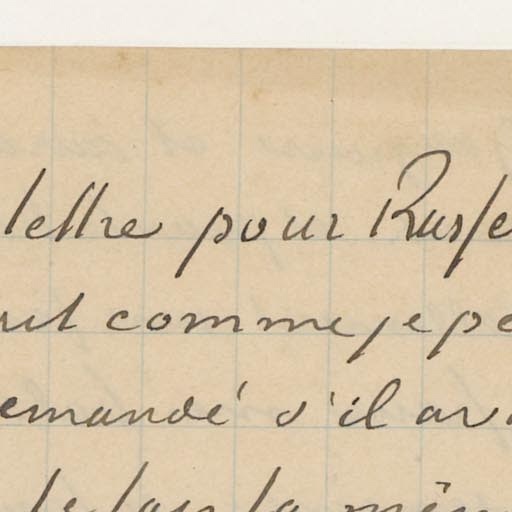 lettre pour Russe
comme je pe
emandé s'il av
la mêm